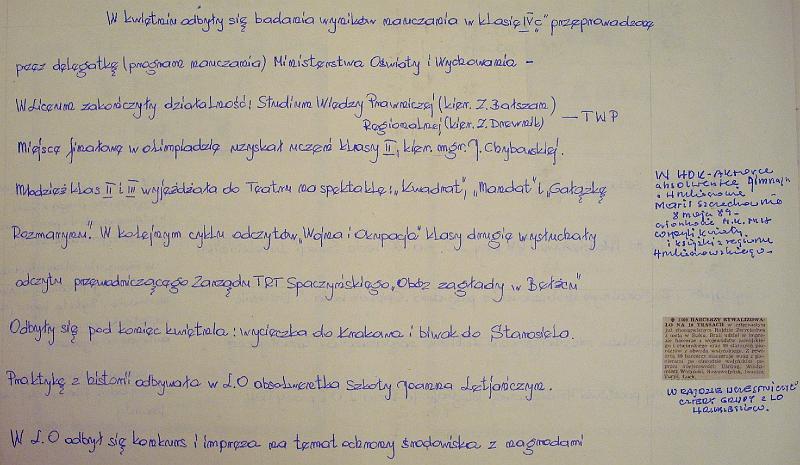 W kwietniu odbyły się badania wyników nauczania w klasie IVc" przeprowadzone
przez delegatkę (program nauczania) Ministerstwa Oświaty i Wychowania -
W Liceum zakończyły działalność: Studium Wiedzy Prawniczej (kier. Z. Bałszan)
Regionalnej (kier. Z. Drewnik) — TWP
Miejsce finałowe w olimpiadzie uzyskał uczeń klasy II, kier. mgr. J. Chybowskiej.
Młodzież klas II i III wyjeżdżała do Teatru na spektakle: „Kwadrat", „Mandat" i „Gałązkę
Rozmarynu". W kolejnym cyklu odczytów „Wojna i Okupacja" klasy drugie wysłuchały
odczytu przewodniczącego Zarządu TRT Spaczyńskiego „Obóz zagłady w Bełżcu"
Odbyły się pod koniec kwietnia: wycieczka do Krakowa i biwak do Starosiela.
Praktykę z historii odbywała w L.O absolwentka Szkoły Joanna Letiańczym.
W L.O odbył się konkurs i impreza na temat ochrony środowiska z nagrodami
W HDK-
absolwentce gimnazj.
w Hrubieszowie
Marii
8 maja 89-
wręczyli kwiaty
i książki z regionu
Hrubieszowskiego-
HARCERZY RYWALIZOWA-
ŁO NA 10 TRASACH
W RAJDZIE UCZESTNICZYŁY
CZTERY GRUPY Z LO
HRUBIESZÓW.